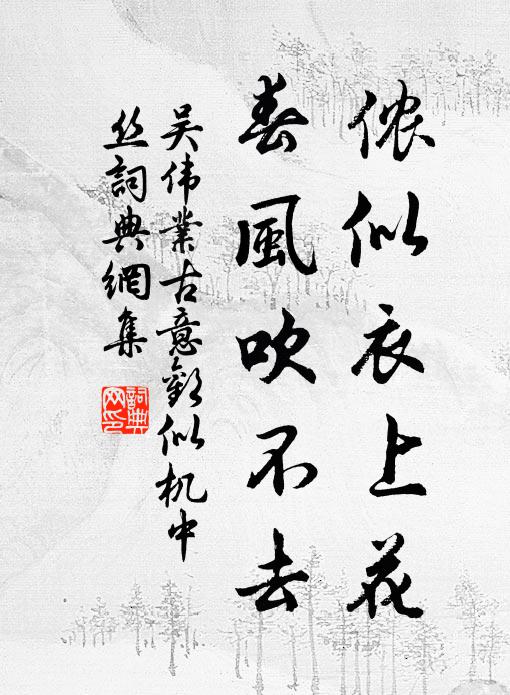 侬似衣上花
春風吹不去
吴伟業古意歡似机中
丝詞典網集
詞典网印